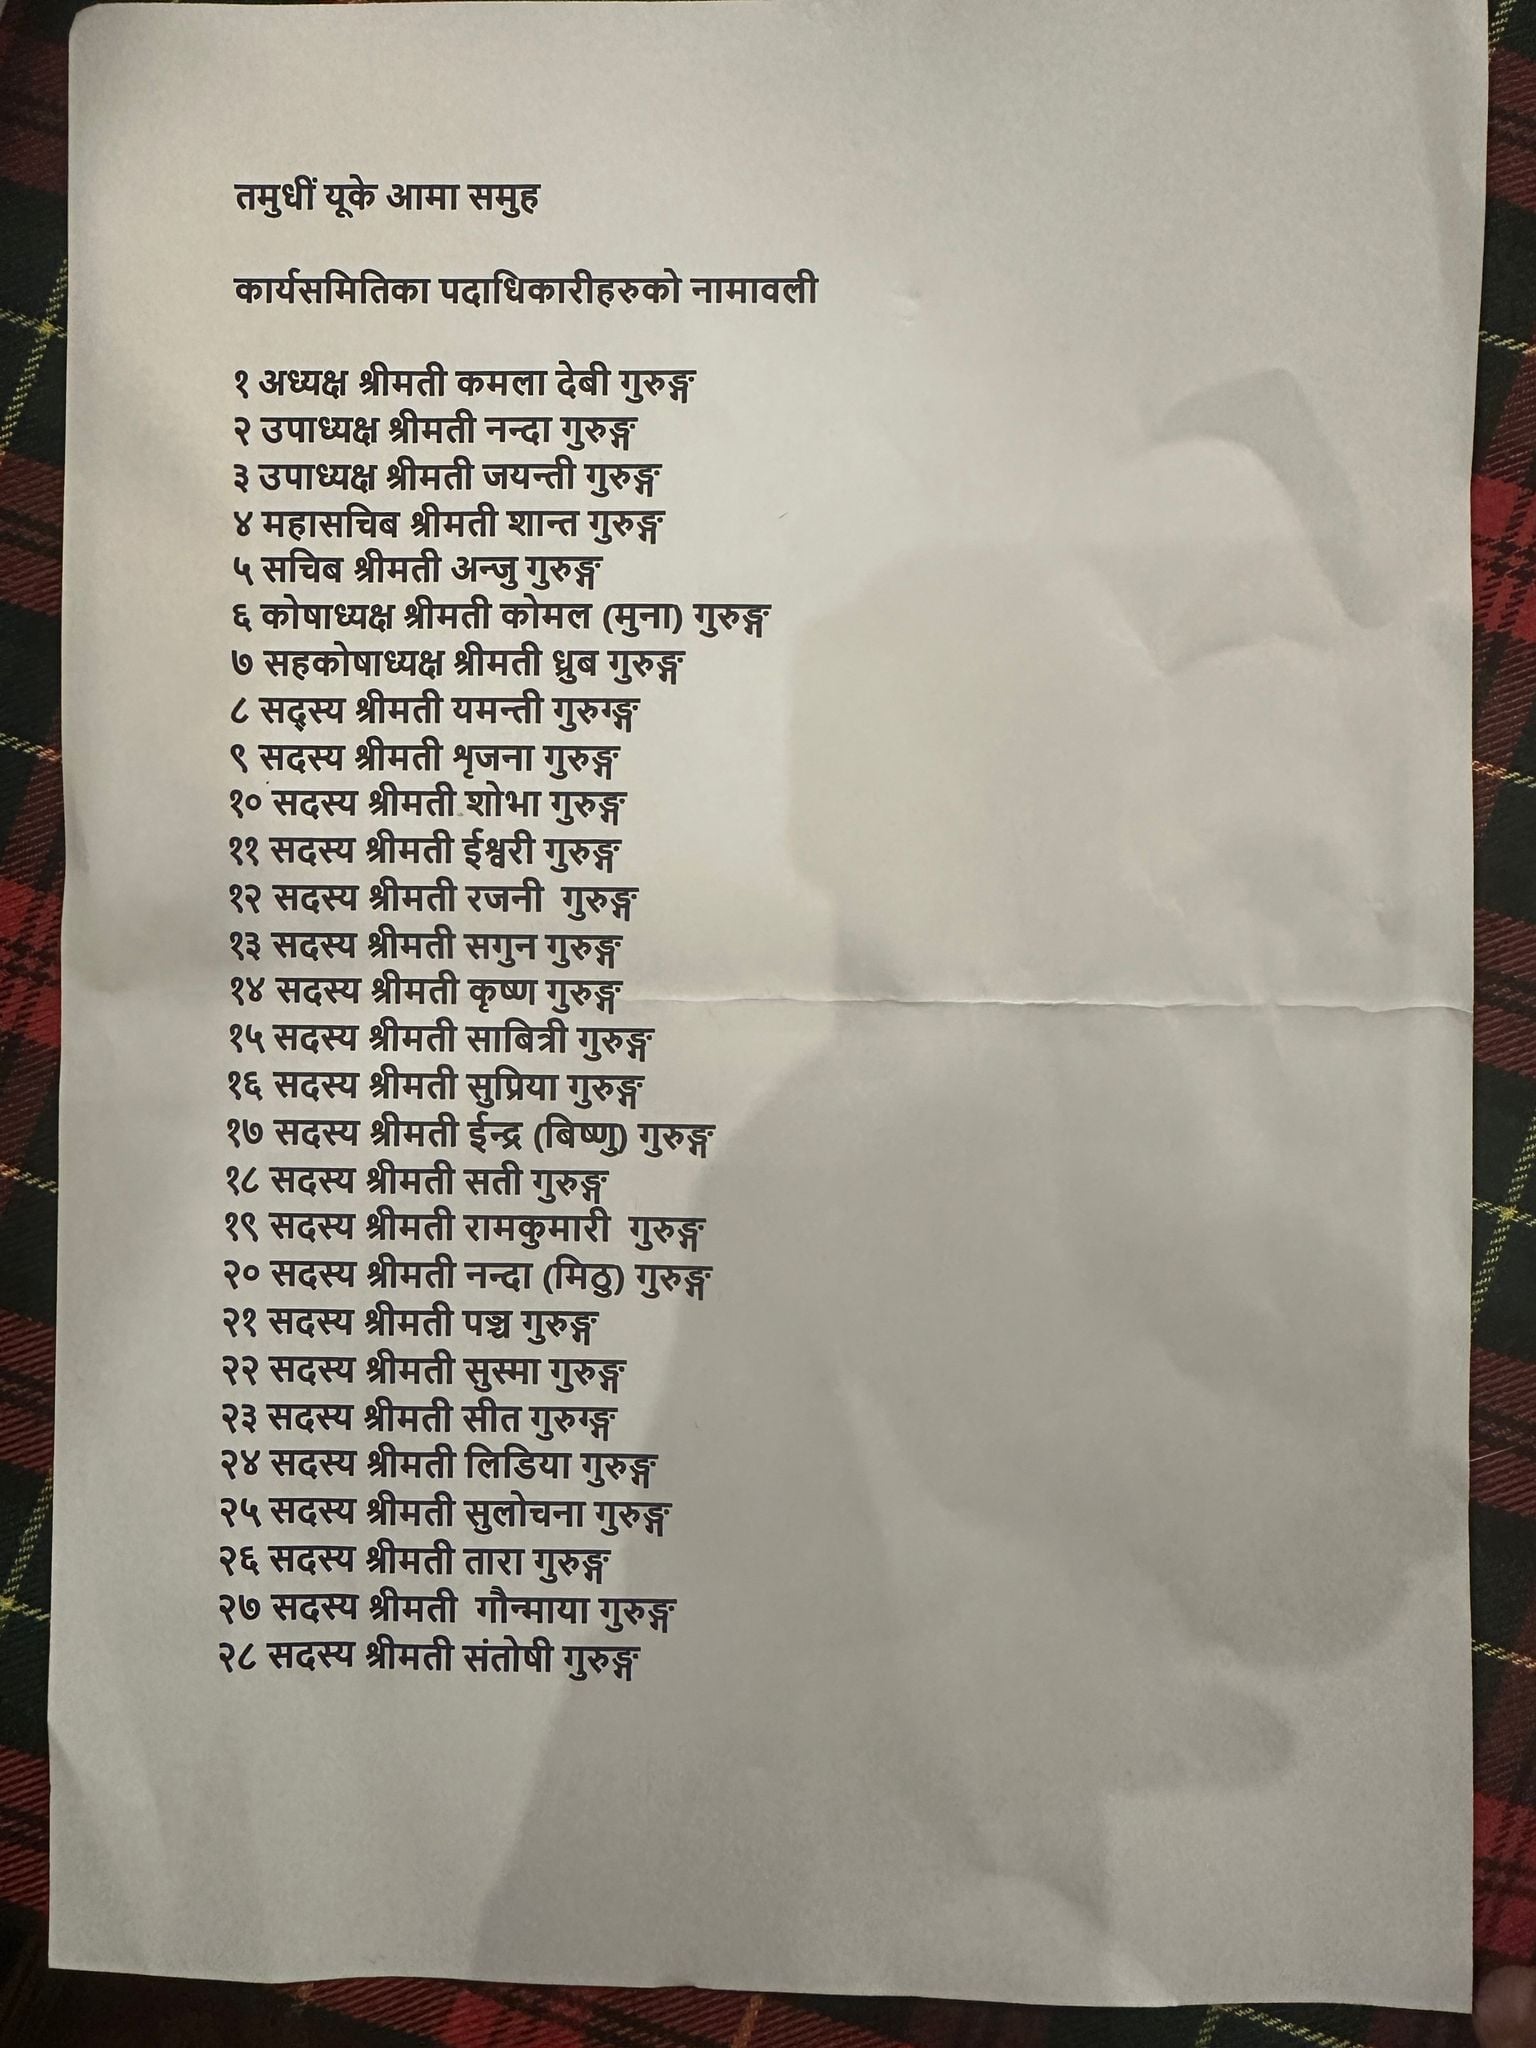 तमुधीं यूके आमा समुह
कार्यसमितिका पदाधिकारीहरुको नामावली
१ अध्यक्ष श्रीमती कमला देबी गुरुङ्ग
२ उपाध्यक्ष श्रीमती नन्दा गुरुङ्ग
३ उपाध्यक्ष श्रीमती जयन्ती गुरुङ्ग
४ महासचिब श्रीमती शान्त गुरुङ्ग
५ सचिब श्रीमती अन्जु गुरुङ्ग
६ कोषाध्यक्ष श्रीमती कोमल (मुना) गुरुङ्ग
७ सहकोषाध्यक्ष श्रीमती ध्रुब गुरुङ्ग
८ सद्स्य श्रीमती यमन्ती गुरुग्ङ्ग
९ सदस्य श्रीमती शृजना गुरुङ्ग
१० सदस्य श्रीमती शोभा गुरुङ्ग
११ सदस्य श्रीमती ईश्वरी गुरुङ्ग
१२ सदस्य श्रीमती रजनी  गुरुङ्ग
१३ सदस्य श्रीमती सगुन गुरुङ्ग
१४ सदस्य श्रीमती कृष्ण गुरुङ्ग
१५ सदस्य श्रीमती साबित्री गुरुङ्ग
१६ सदस्य श्रीमती सुप्रिया गुरुङ्ग
१७ सदस्य श्रीमती ईन्द्र (बिष्णु) गुरुङ्ग
१८ सदस्य श्रीमती सती गुरुङ्ग
१९ सदस्य श्रीमती रामकुमारी  गुरुङ्ग
२० सदस्य श्रीमती नन्दा (मिठु) गुरुङ्ग
२१ सदस्य श्रीमती पञ्च गुरुङ्ग
२२ सदस्य श्रीमती सुस्मा गुरुङ्ग
२३ सदस्य श्रीमती सीत गुरुग्ङ्ग
२४ सदस्य श्रीमती लिडिया गुरुङ्ग
२५ सदस्य श्रीमती सुलोचना गुरुङ्ग
२६ सदस्य श्रीमती तारा गुरुङ्ग
२७ सदस्य श्रीमती  गौन्माया गुरुङ्ग
२८ सदस्य श्रीमती संतोषी गुरुङ्ग